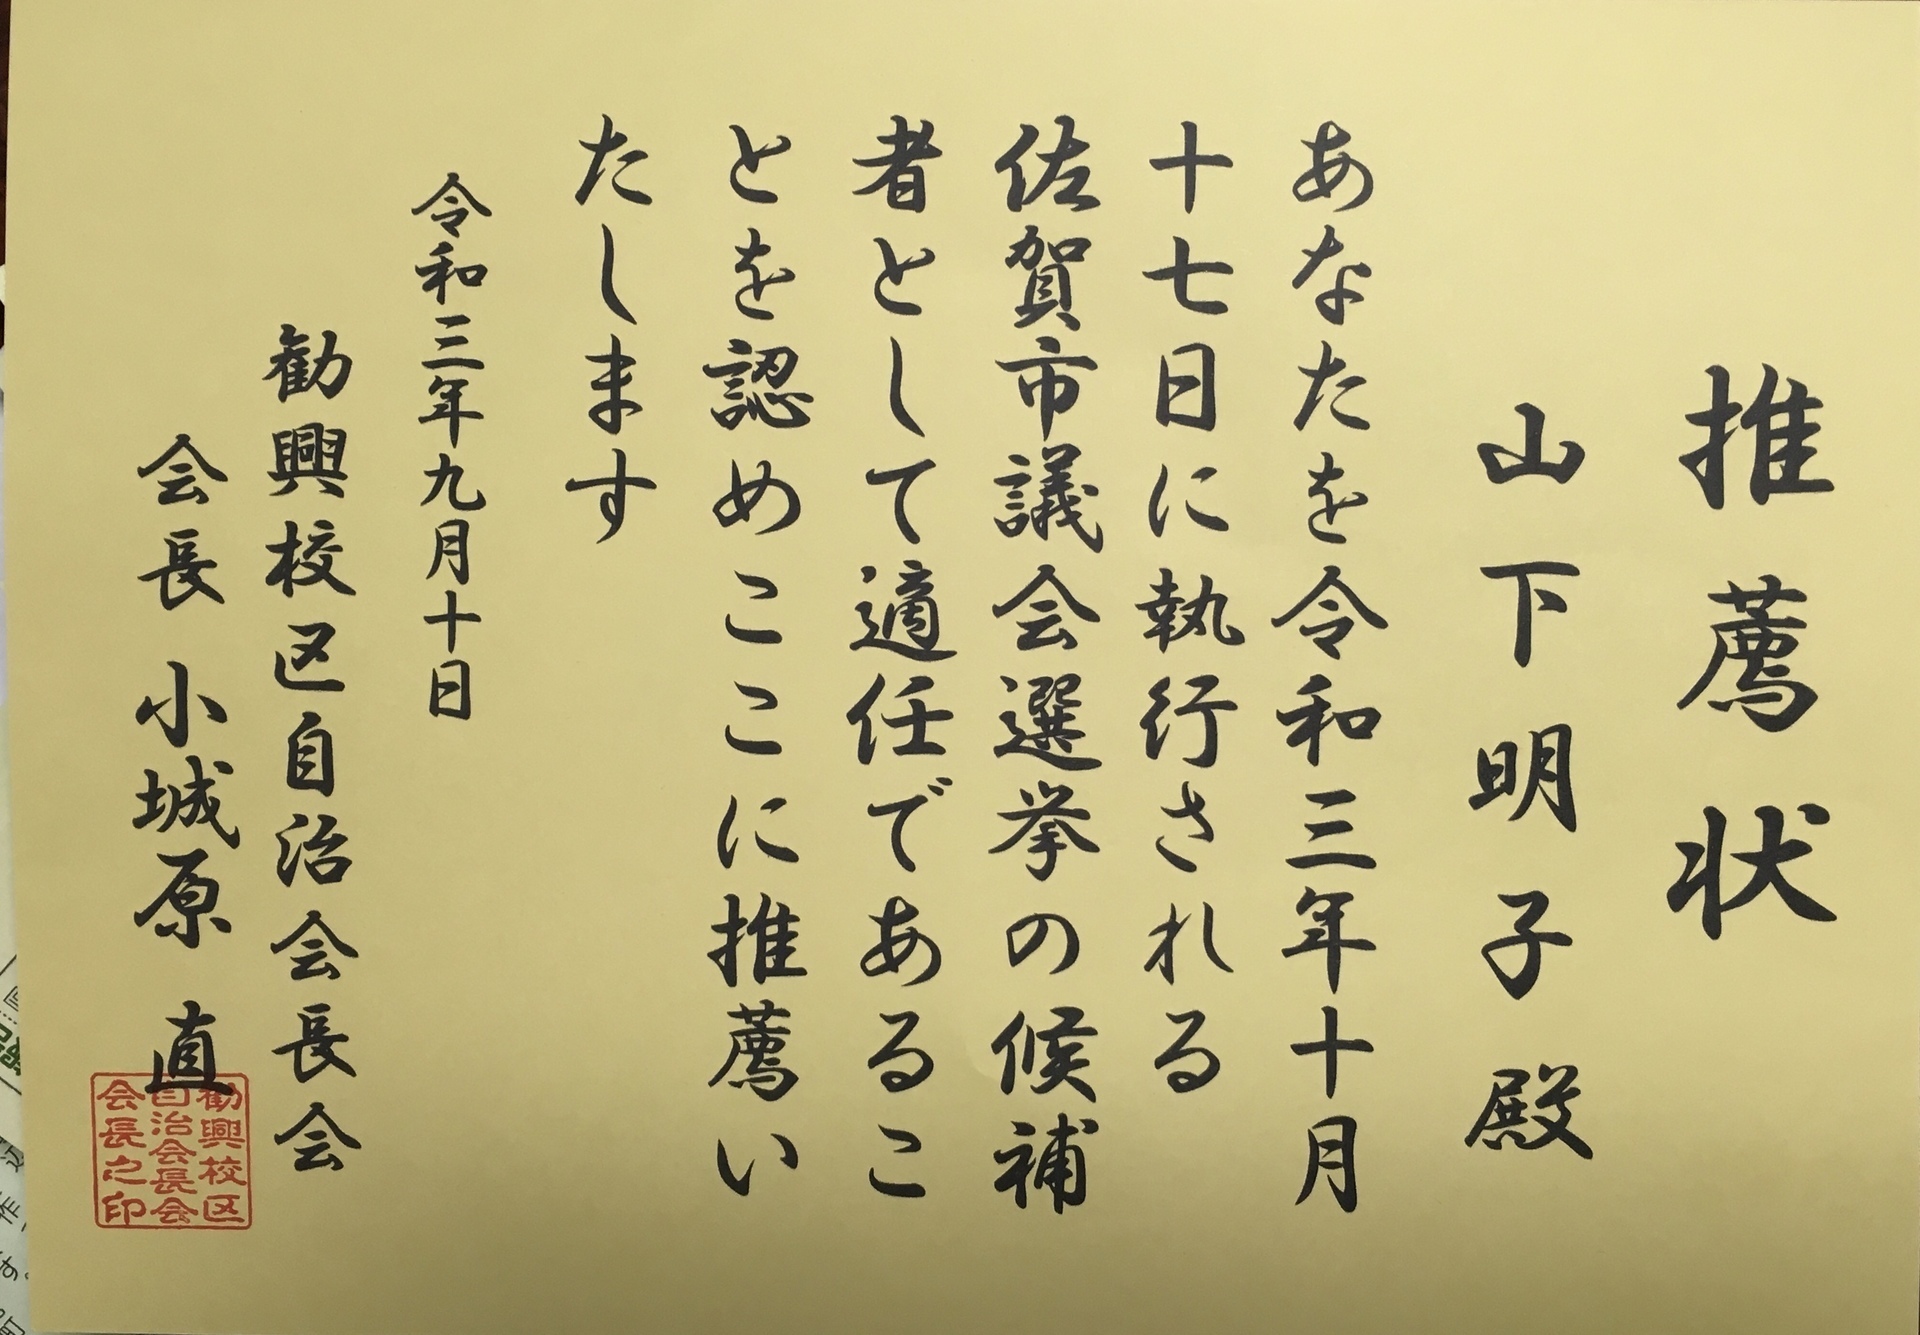 推薦状
山下明子殿
あなたを令和三年十月
十七日に執行される
佐賀市議会選挙の候補
者として適任であるこ
とを認めここに推薦い
たします
令和三年九月十日
勧興校区自治会長会
会長 小城原 直
勧興校区
自治会長会
会長之印